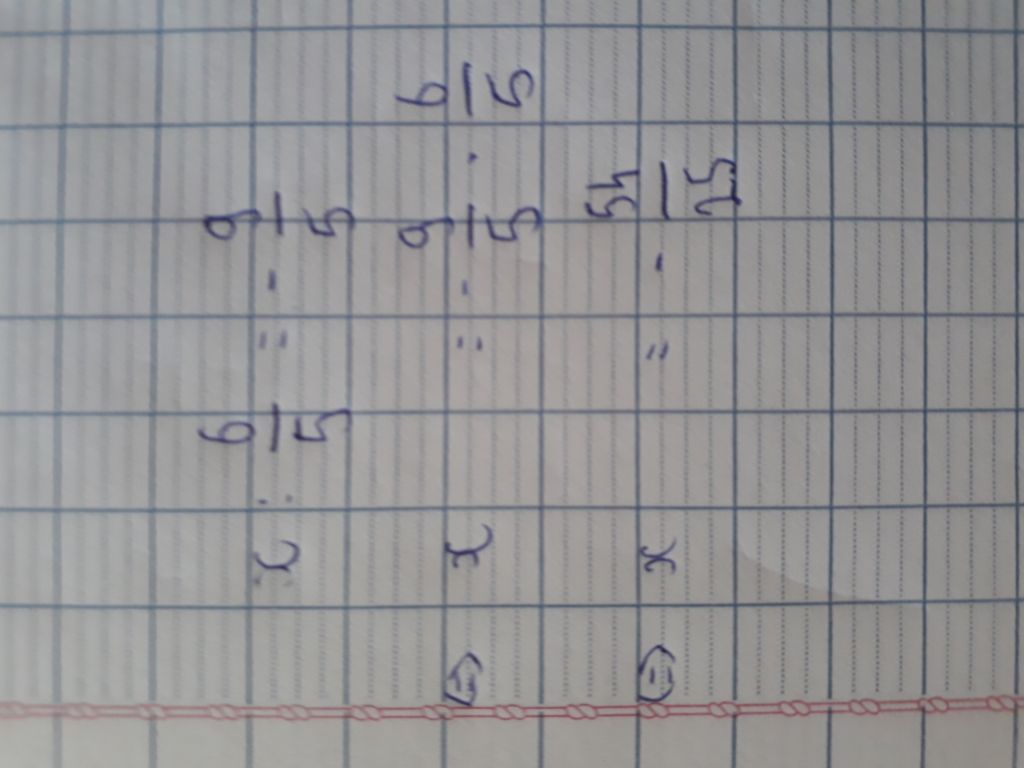 x : 6/5 = - 9/5
⇔ x = - 9/5 . 6/5
⇔ x = - 54/25